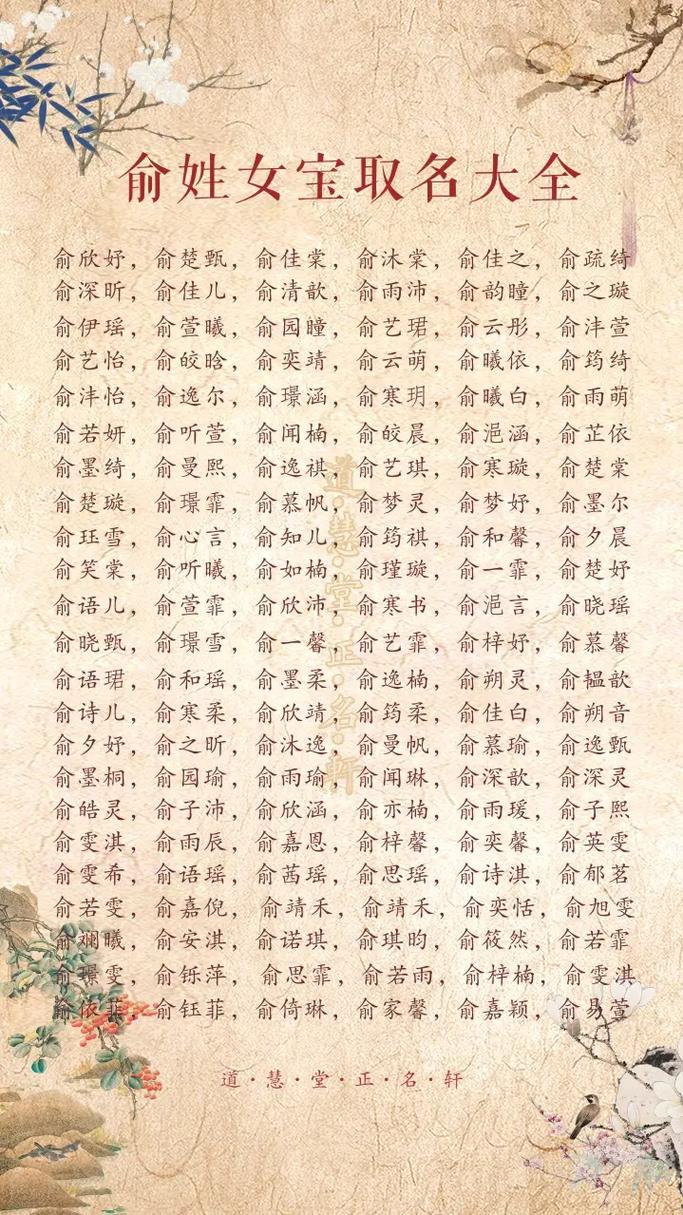 俞姓女宝取名大全
俞欣妤，俞楚甄，俞佳棠，俞沐棠，俞佳之，俞疏绮
俞深昕，俞佳儿，俞清歆，俞雨沛，俞韵瞳，俞之璇
俞伊瑶，俞萱曦，俞园瞳，俞艺珺，俞云彤，俞沣萱
俞艺怡，俞皎晗，俞奕靖，俞云萌，俞曦依，俞筠绮
俞沣怡，俞逸尔，俞璟涵，俞寒玥，俞曦白，俞雨萌
俞若妍，俞听萱，俞闻楠，俞皎晨，俞浥涵，俞芷依
俞墨绮，俞曼熙，俞逸祺，俞艺琪，俞寒璇，俞楚棠
俞楚璇，俞璟霏，俞慕帆，俞梦灵，俞梦妤，俞墨尔
俞珏雪，俞心言，俞知儿，俞筠祺，俞和馨，俞夕晨
俞笑棠，俞听曦，俞如楠，俞瑾璇，俞一霏，俞楚妤
俞语儿，俞萱霏，俞欣沛，俞寒书，俞浥言，俞晓瑶
俞晓甄，俞璟雪，俞一馨，俞艺霏，俞梓妤，俞慕馨
俞语珺，俞和瑶，俞墨柔，俞逸楠，俞朔灵，俞韫歆
俞诗儿，俞寒柔，俞欣靖，俞筠柔，俞佳白，俞朔音
俞夕妤，俞之昕，俞沐逸，俞曼帆，俞慕瑜，俞逸甄
俞墨桐，俞园瑜，俞雨瑜，俞闻琳，俞深歆，俞深灵
俞皓灵，俞子沛，俞欣涵，俞亦楠，俞雨瑗，俞子熙
俞雯淇，俞雨辰，俞嘉恩，俞梓馨，俞奕馨，俞英雯
俞雯希，俞语瑶，俞茜瑶，俞思瑶，俞诗淇，俞郁茗
俞若雯，俞嘉倪，俞靖禾，俞靖禾，俞奕恬，俞旭雯
俞斓曦，俞安淇，俞诺琪，俞琪昀，俞筱然，俞若霏
俞璟雯，俞铄萍，俞思霏，俞若雨，俞梓楠，俞雯淇
俞依菲，俞钰菲，俞倚琳，俞家馨，俞嘉颖，俞易萱
道慧堂正名轩
道·慧·堂·正·名·轩